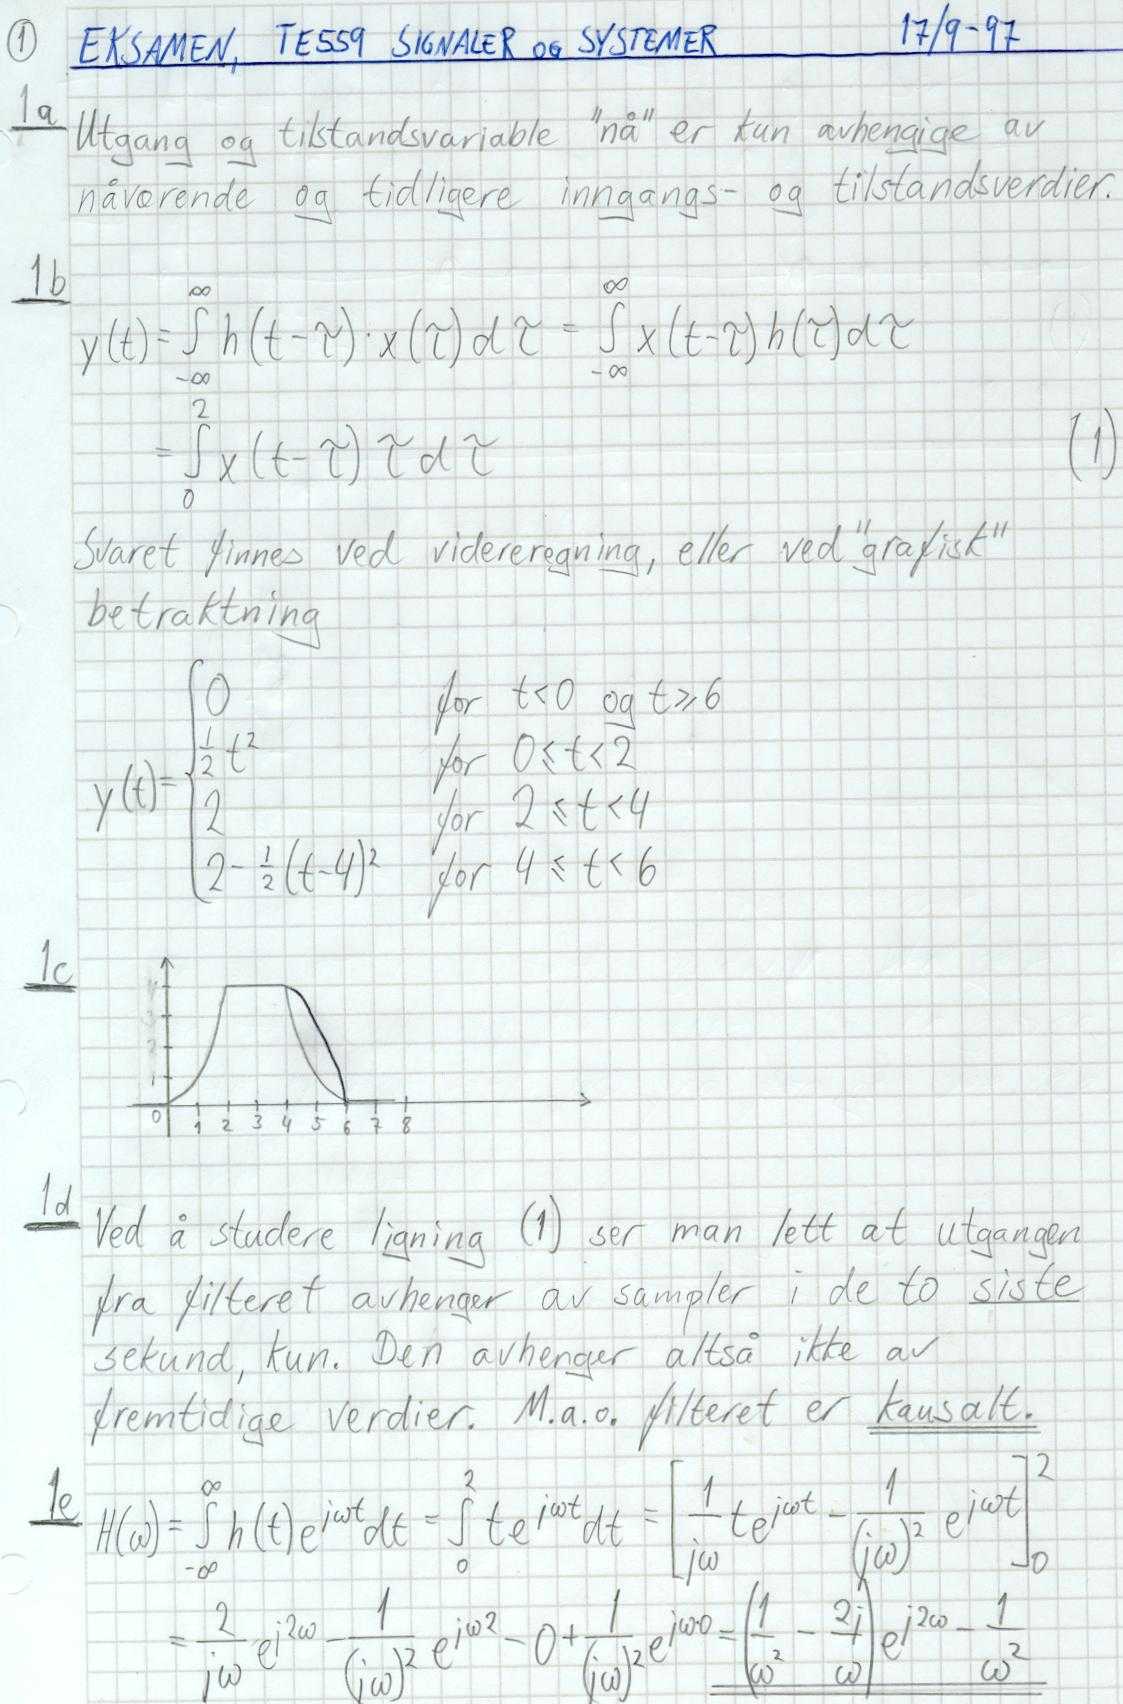 ① EKSAMEN, TE559 SIGNALER OG SYSTEMER 17/9-97
1a Utgang og tilstandsvariable "nå" er kun avhengige av
nåværende og tidligere inngangs- og tilstandsverdier.
1b
y(t) = ∫_{-∞}^{∞} h(t-τ)·x(τ)dτ = ∫_{-∞}^{∞} x(t-τ)h(τ)dτ
= ∫_0^2 x(t-τ) τ dτ (1)
Svaret finnes ved videreregning, eller ved "grafisk"
betraktning
y(t) = {
0 for t<0 og t≥6
½t² for 0≤t<2
2 for 2≤t<4
2-½(t-4)² for 4≤t<6
1c
4
3
2
1
0 1 2 3 4 5 6 7 8
1d Ved å studere ligning (1) ser man lett at utgangen
fra filteret avhenger av sampler i de to siste
sekund, kun. Den avhenger altså ikke av
fremtidige verdier. M.a.o. filteret er kausalt.
1e H(ω) = ∫_{-∞}^{∞} h(t)e^{jωt}dt = ∫_0^2 te^{jωt}dt = [1/(jω) te^{jωt} - 1/(jω)² e^{jωt}]_0^2
= 2/(jω) e^{j2ω} - 1/(jω)² e^{jω2} - 0 + 1/(jω)² e^{jω0} = (1/ω² - 2j/ω) e^{j2ω} - 1/ω²